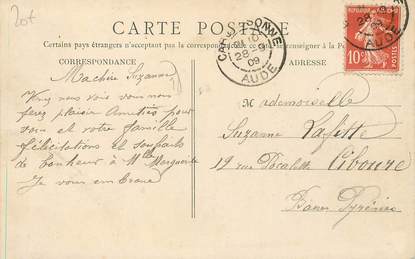 20t
CARTE POSTALE
Certains pays étrangers n'acceptant pas la correspondance
se renseigner à la Poste
CORRESPONDANCE
ADRESSE
CARCASSONNE
28-9
09
AUDE
28-9
09
AUDE
10
POSTES
Ma chère Suzanne
nous vous nous
ferez plaisir Amitiés pour
vous et votre famille
félicitations et souhaits
de bonheur à Mlle Marguerite
Je vous embrasse
Mademoiselle
Suzanne Lafitte
rue Ciboure
Basses Pyrénées